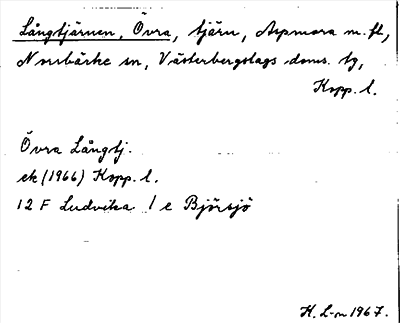 Långtjärnen, Övra, tjärn, Aspmora m.fl,
Norrbärke sn, Västerbergslags doms. tg,
Kopp. l.
Övra Långtj.
ek (1966) Kopp. l.
12 F Ludvika 1 e Björsjö
H. L-n 1967.